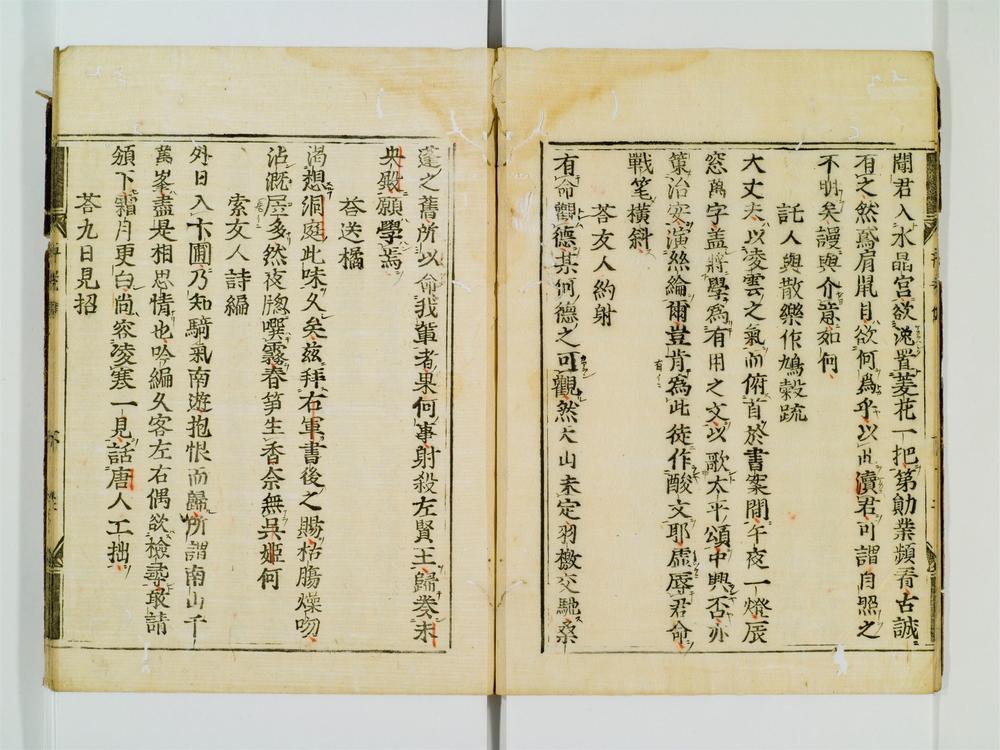 聞君入水晶宮欲逸置菱花一把第勛業頻看古誠
有之然鳶肩鼠目欲何爲乎以此瀆君可謂自照之
不明矣謾與介意如何
託人與散樂作鳩穀疏
大丈夫以凌雲之氣而俯首於書案間午夜一燈辰
窓萬字盖將學爲有用之文以歌太平頌中興否亦
策治安演絲綸爾豈肯爲此徒作酸文耶虛辱君命
戰笔橫斜
荅友人約射
有命觀德某何德之可觀然天山未定羽檄交馳桑
蓬之舊所以命我輩者果何事射殺左賢王歸奏未
央殿願學焉
荅送橘
渴想洞庭此味久矣茲拜右軍書後之賜枯膓燥吻
沾漑居多然夜牕噀霧春笋生香奈無吳姬何
索友人詩編
外日入下圃乃知騎氣南遊抱恨而歸所謂南山千
萬峯盡是相思情也吟編久客左右偶欲檢尋敢請
頒下霜月更白尚容凌寒一見話唐人工拙
荅九日見招